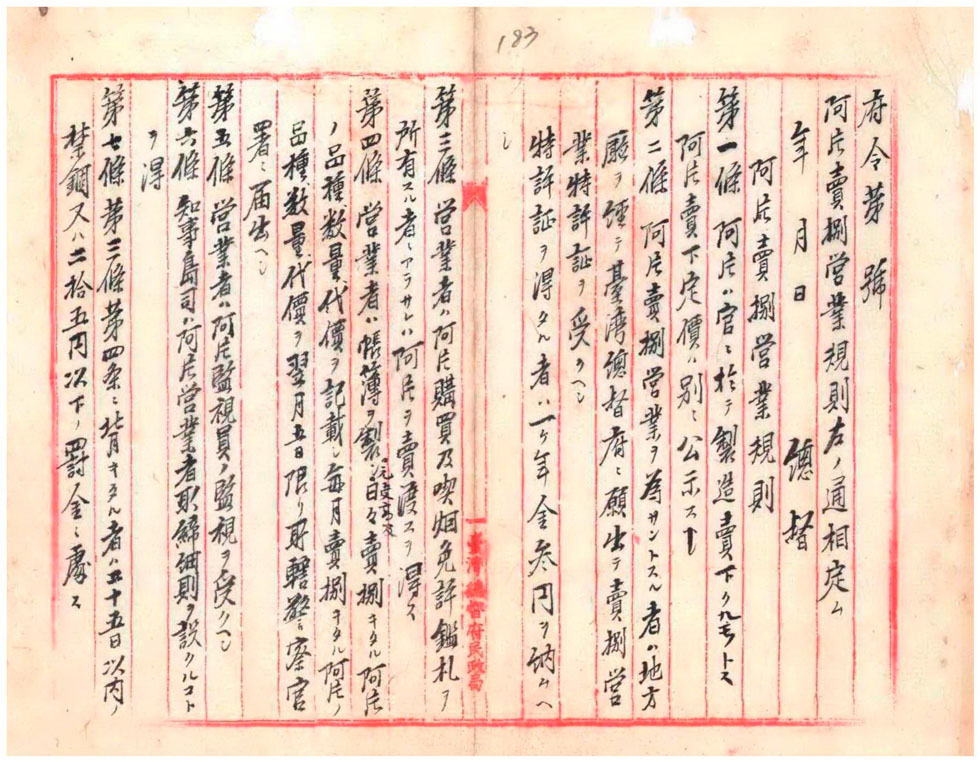 183
府令第　號
阿片賣捌営業規則左ノ通相定ム
年　月　日　　總督
阿片賣捌営業規則
第一條　阿片ハ官ニ於テ製造賣下クルモノトス
阿片賣下定價ハ別ニ公示スヘシ
第二條　阿片賣捌営業ヲ為サントスル者ハ地方
廳ヲ経テ臺湾總督府ニ願出テ賣捌営
業特許証ヲ受クヘシ
特許証ヲ得タル者ハ一ケ年金参円ヲ納ムヘ
シ
臺灣總督府民政局
第三條　営業者ハ阿片購買及喫烟免許鑑札ヲ
所有スル者ニアラサレハ阿片ヲ賣渡スヲ得ス
第四條　営業者ハ帳簿ヲ製シ日々賣捌キタル阿片
ノ品種数量代價ヲ記載シ毎月賣捌キタル阿片ノ
品種、数量、代價ヲ翌月五日限リ所轄警察官
署ニ届出ヘシ
第五條　営業者ハ阿片監視員ノ監視ヲ受クヘシ
第六條　知事島司ハ阿片営業者取締細則ヲ設クルコト
ヲ得
第七條　第三條第四条ニ背キタル者ハ二十五日以内ノ
禁錮又ハ二拾五円以下ノ罰金ニ處ス